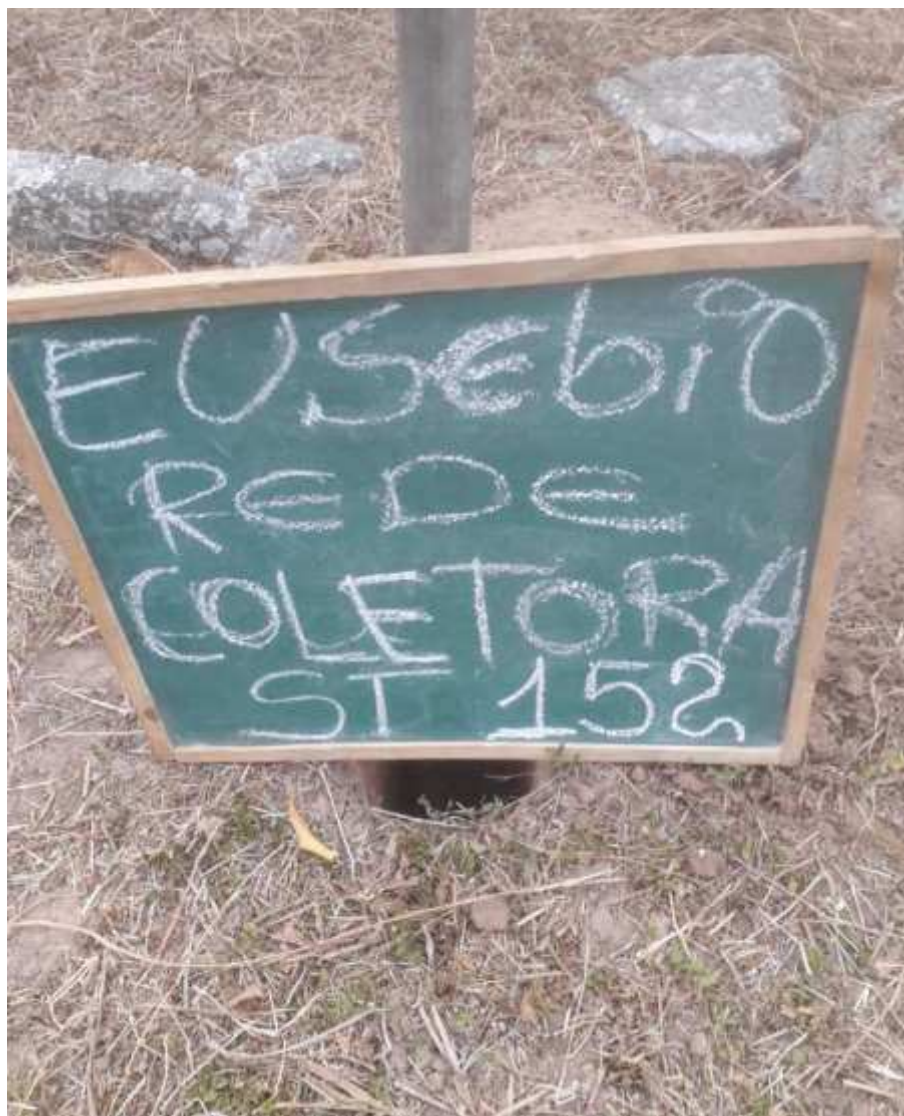 EUSEbiO
REDE
COLETORA
ST 152